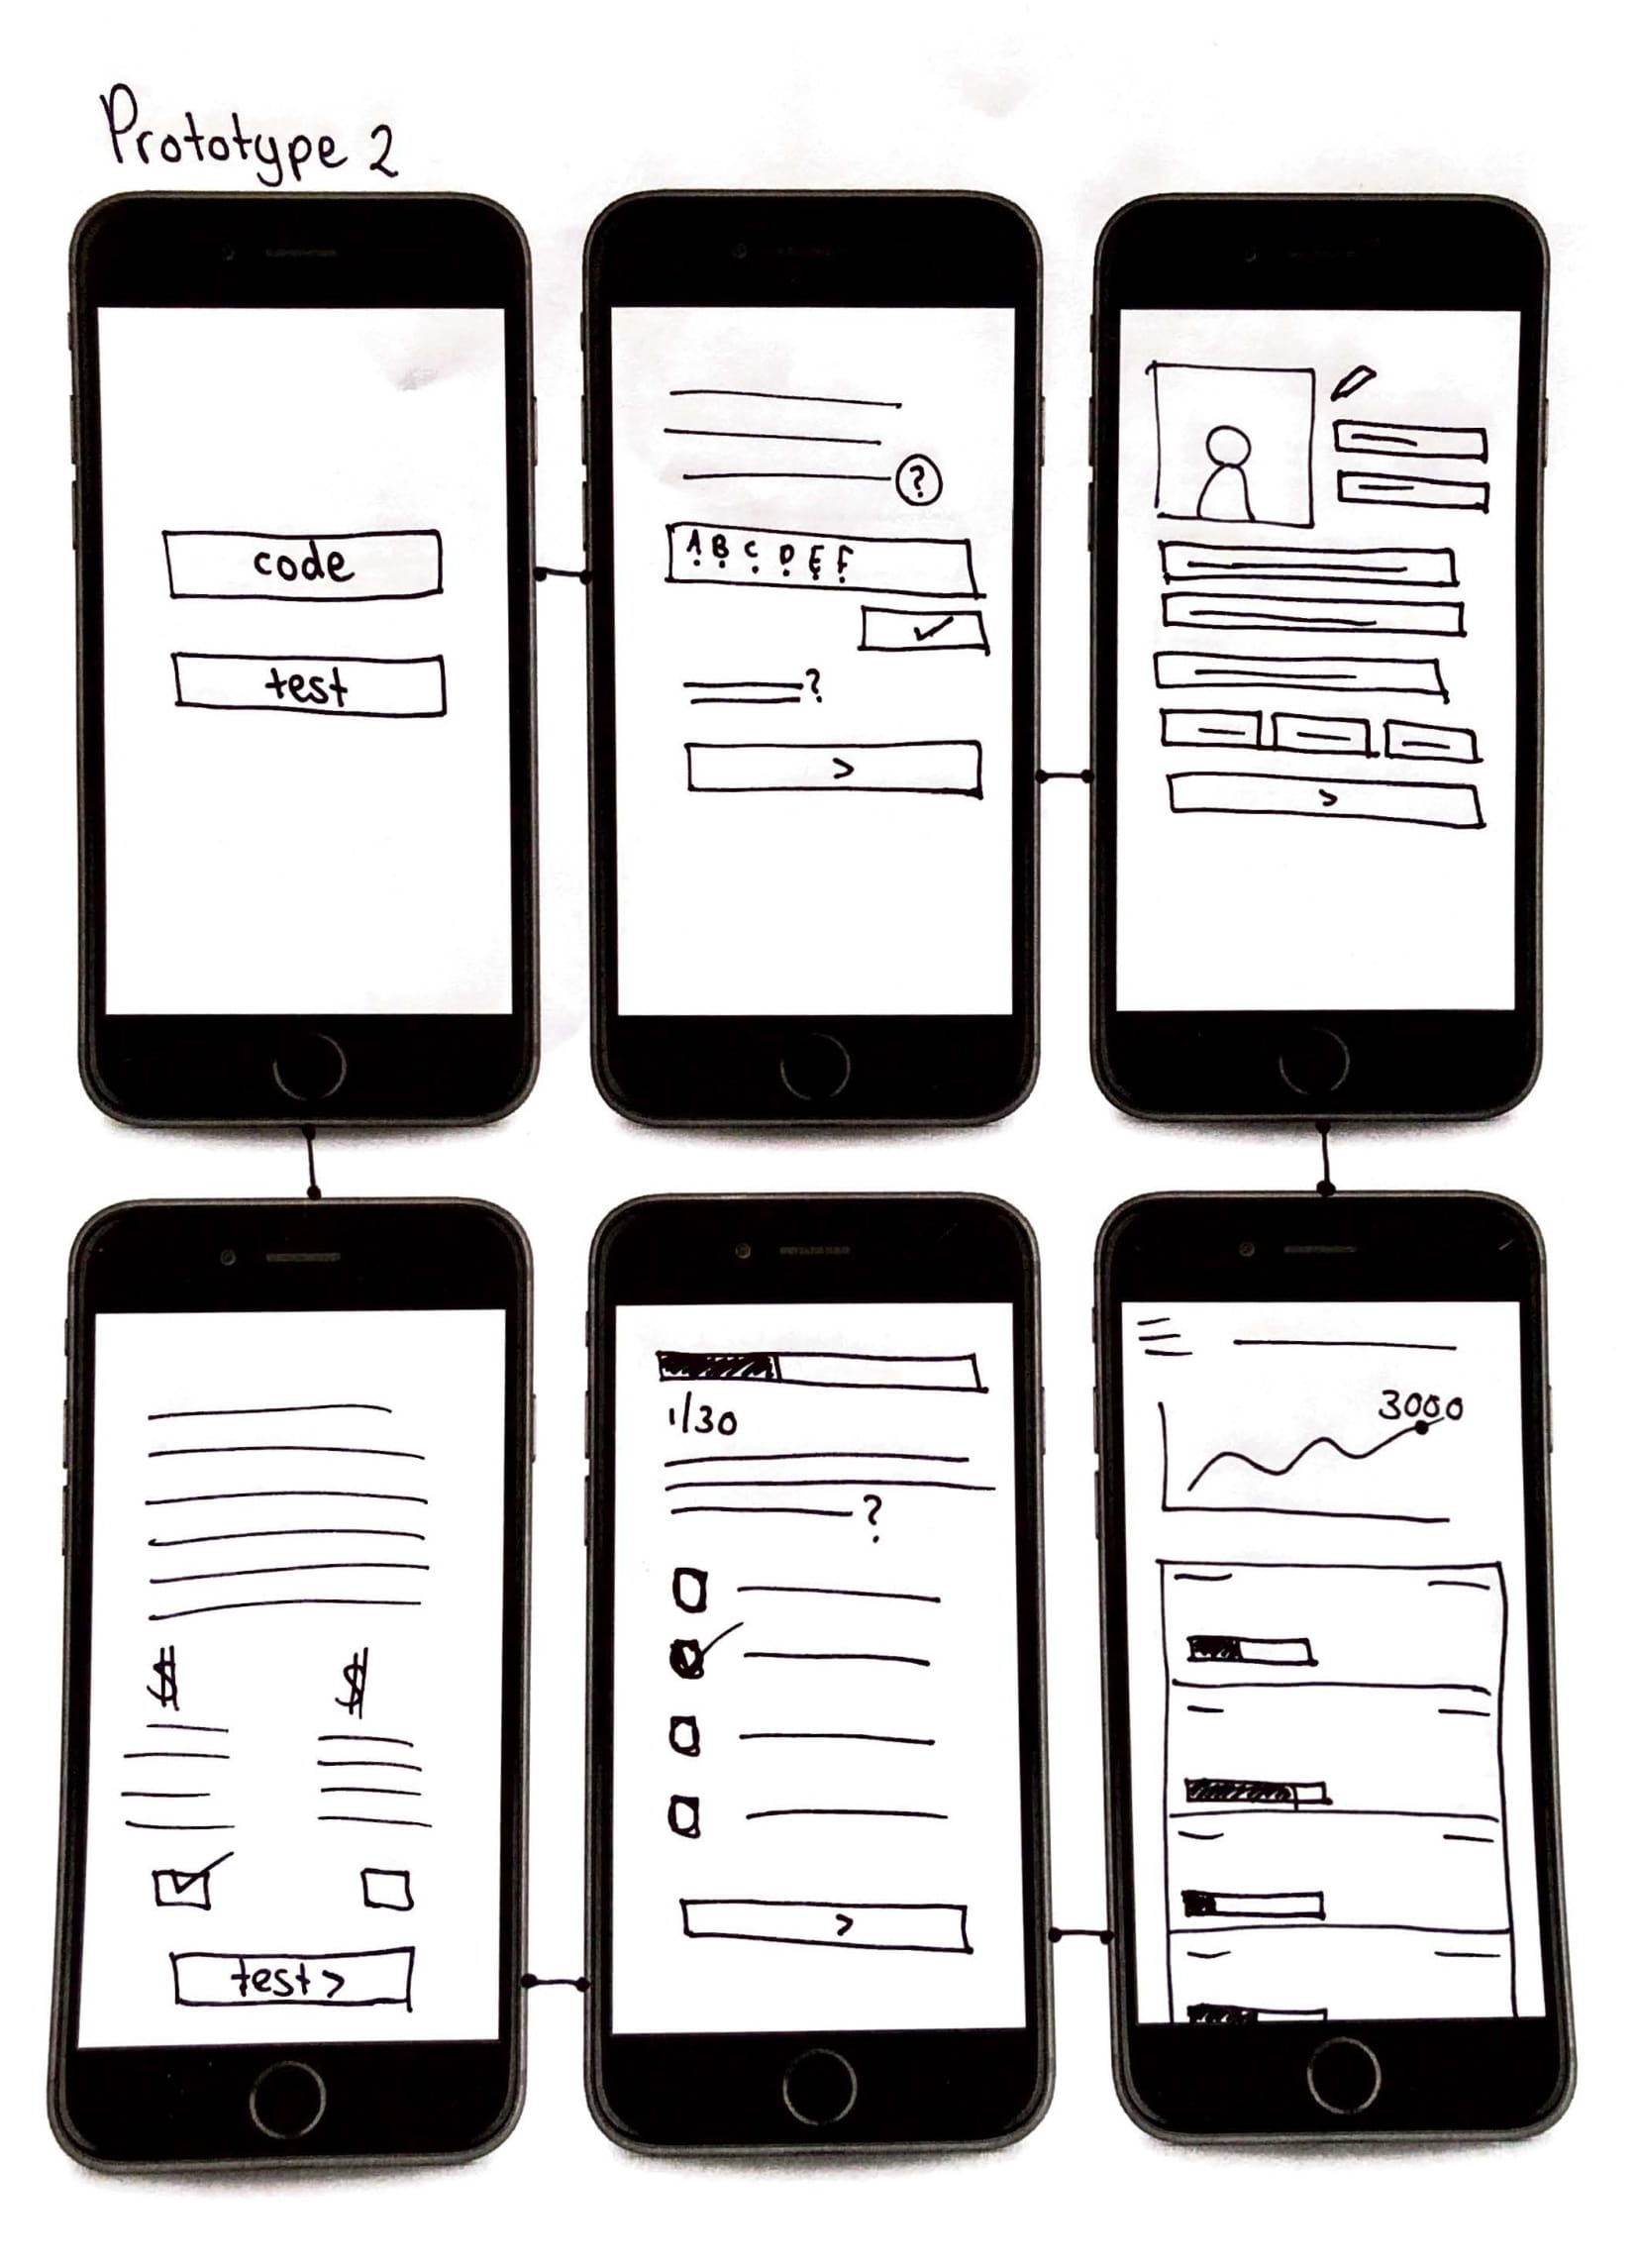 Prototype 2
code
test
?
A B C D E F
?
>
>
$ $
test >
1/30
?
>
3000